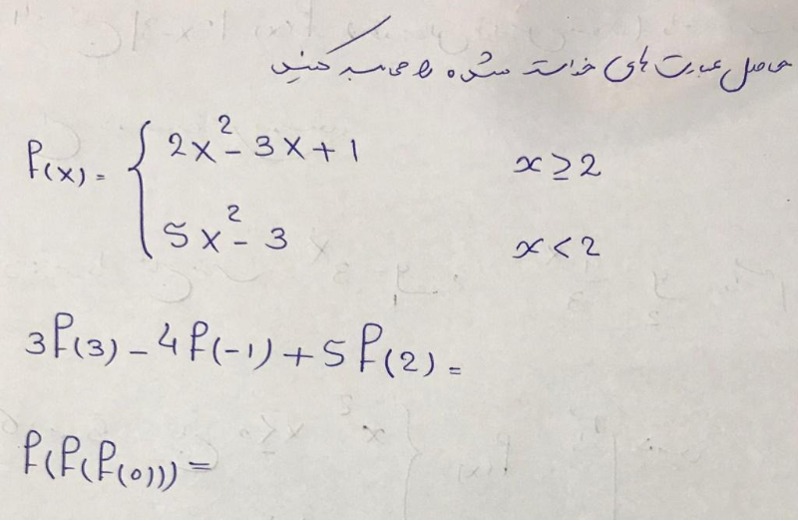 حاصل عبارت های خواسته شده را محاسبه کنید
f(x) = { 2x² - 3x + 1    x ≥ 2
5x² - 3    x < 2
3f(3) - 4f(-1) + 5f(2) =
f(f(f(0))) =